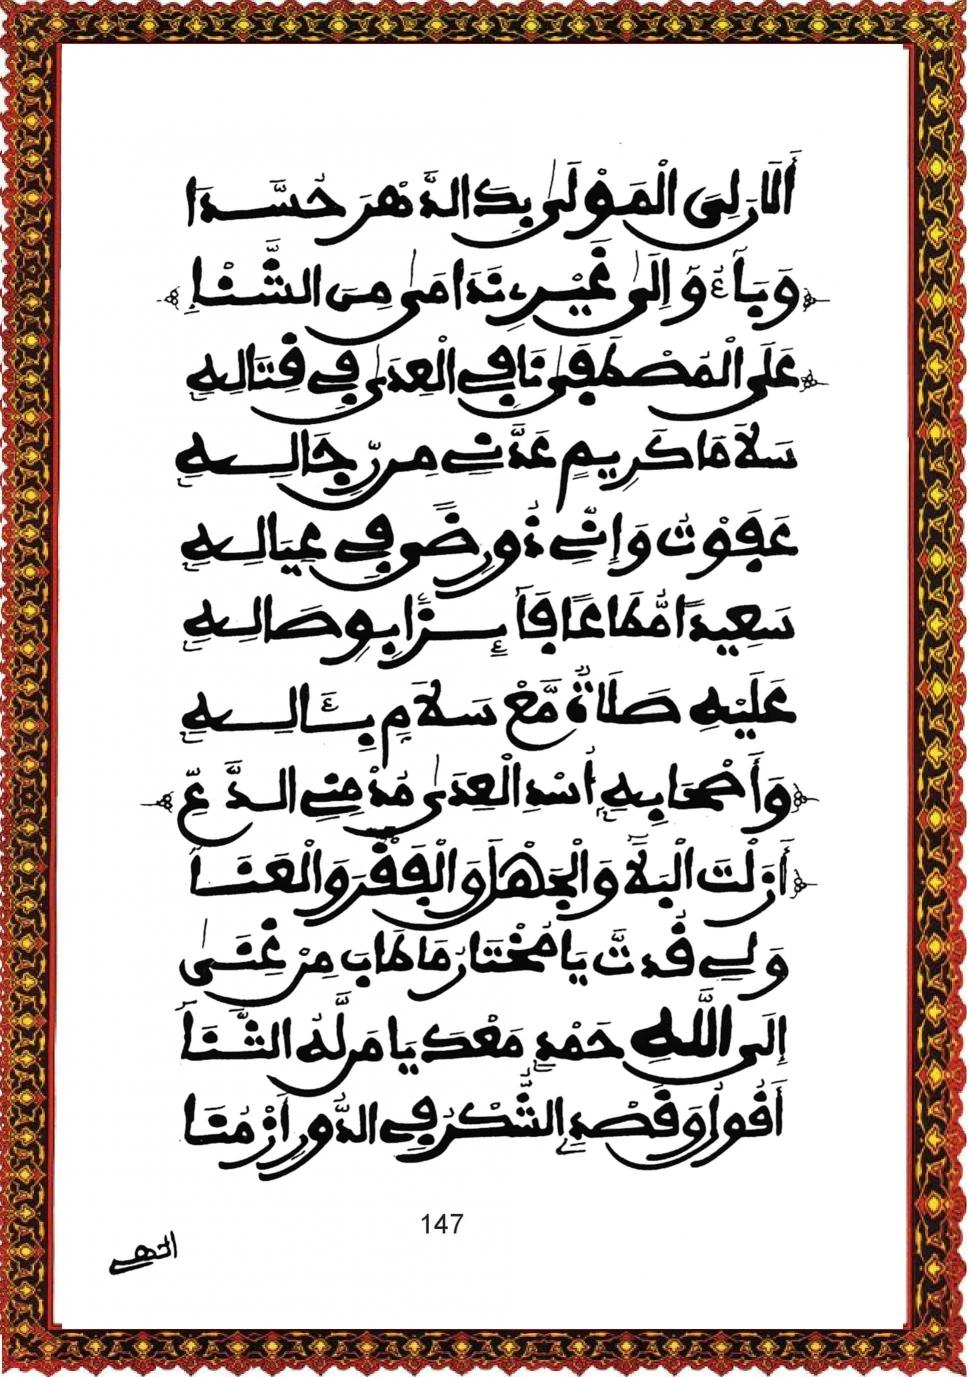 أَلَانَ لِيَ الْمَوْلَى بِكَ الدَّهْرَ حُسَّدَا
وَبَآءُو إِلَى غَيْرِ نَدَامَى مِنَ الشَّنَا
عَلَى الْمُصْطَفَى نَافِي الْعِدَى فِي قِتَالِهِ
سَلَامَا كَرِيمٍ عَدَّنِي مِن رِّجَالِهِ
عَفَوْتُ وَإِنِّي ذُو رِضًى فِي عِيَالِهِ
سَعِيدًا مُّطَاعًا فَآئِزًا بِوِصَالِهِ
عَلَيْهِ صَلَاةٌ مَّعْ سَلَامٍ بِئَالِهِ
وَأَصْحَابِهِ أُسْدِ الْعِدَى مُذْمِنِي الدَّعِّ
أَزَلْتَ الْبَلَا وَالْجَهْلَ وَالْفَقْرَ وَالْعَنَا
وَلِي قُدتَّ يَا مُخْتَارُ مَا طَابَ مِنْ غِنَى
إِلَى اللَّهِ حَمْدِي مَعْكَ يَا مَن لَّهُ الثَّنَا
أَقُولُ وَقَصْدِي الشُّكْرُ فِي الدُّورِ أَزْمُنَا
147